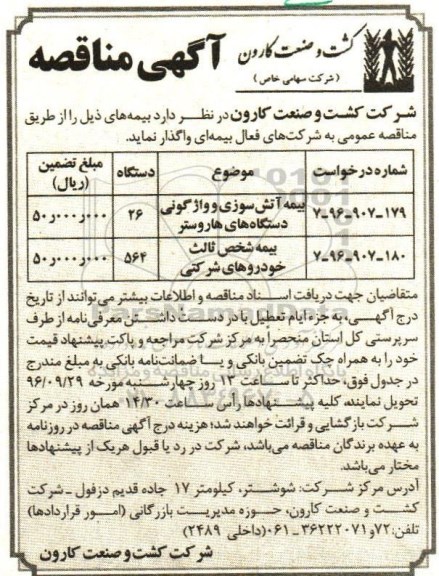 کشت و صنعت کارون
(شرکت سهامی خاص)
آگهی مناقصه
شرکت کشت و صنعت کارون در نظر دارد بیمه‌های ذیل را از طریق
مناقصه عمومی به شرکت‌های فعال بیمه‌ای واگذار نماید.
شماره درخواست موضوع دستگاه مبلغ تضمین (ریال)
۷-۹۶-۹۰۷-۱۷۹ بیمه آتش سوزی و واژگونی دستگاه‌های هاروستر ۲۶ ۵۰ر۰۰۰ر۰۰۰
۷-۹۶-۹۰۷-۱۸۰ بیمه شخص ثالث خودروهای شرکتی ۵۶۴ ۵۰ر۰۰۰ر۰۰۰
متقاضیان جهت دریافت اسناد مناقصه و اطلاعات بیشتر می‌توانند از تاریخ
درج آگهی، به جزء ایام تعطیل با در دست داشتن معرفی‌نامه از طرف
سرپرستی کل استان منحصراً به مرکز شرکت مراجعه و پاکت پیشنهاد قیمت
خود را به همراه چک تضمین بانکی و یا ضمانت‌نامه بانکی به مبلغ مندرج
در جدول فوق، حداکثر تا ساعت ۱۳ روز چهارشنبه مورخه ۹۶/۰۹/۲۹
تحویل نمایند، کلیه پیشنهادها رأس ساعت ۱۴/۳۰ همان روز در مرکز
شرکت بازگشایی و قرائت خواهند شد؛ هزینه درج آگهی مناقصه در روزنامه
به عهده برندگان مناقصه می‌باشد، شرکت در رد یا قبول هریک از پیشنهادها
مختار می‌باشد.
آدرس مرکز شرکت: شوشتر، کیلومتر ۱۷ جاده قدیم دزفول - شرکت
کشت و صنعت کارون، حوزه مدیریت بازرگانی (امور قراردادها)
تلفن: ۷۲ و ۳۶۲۲۲۰۷۱-۰۶۱ (داخلی ۲۴۸۹)
شرکت کشت و صنعت کارون